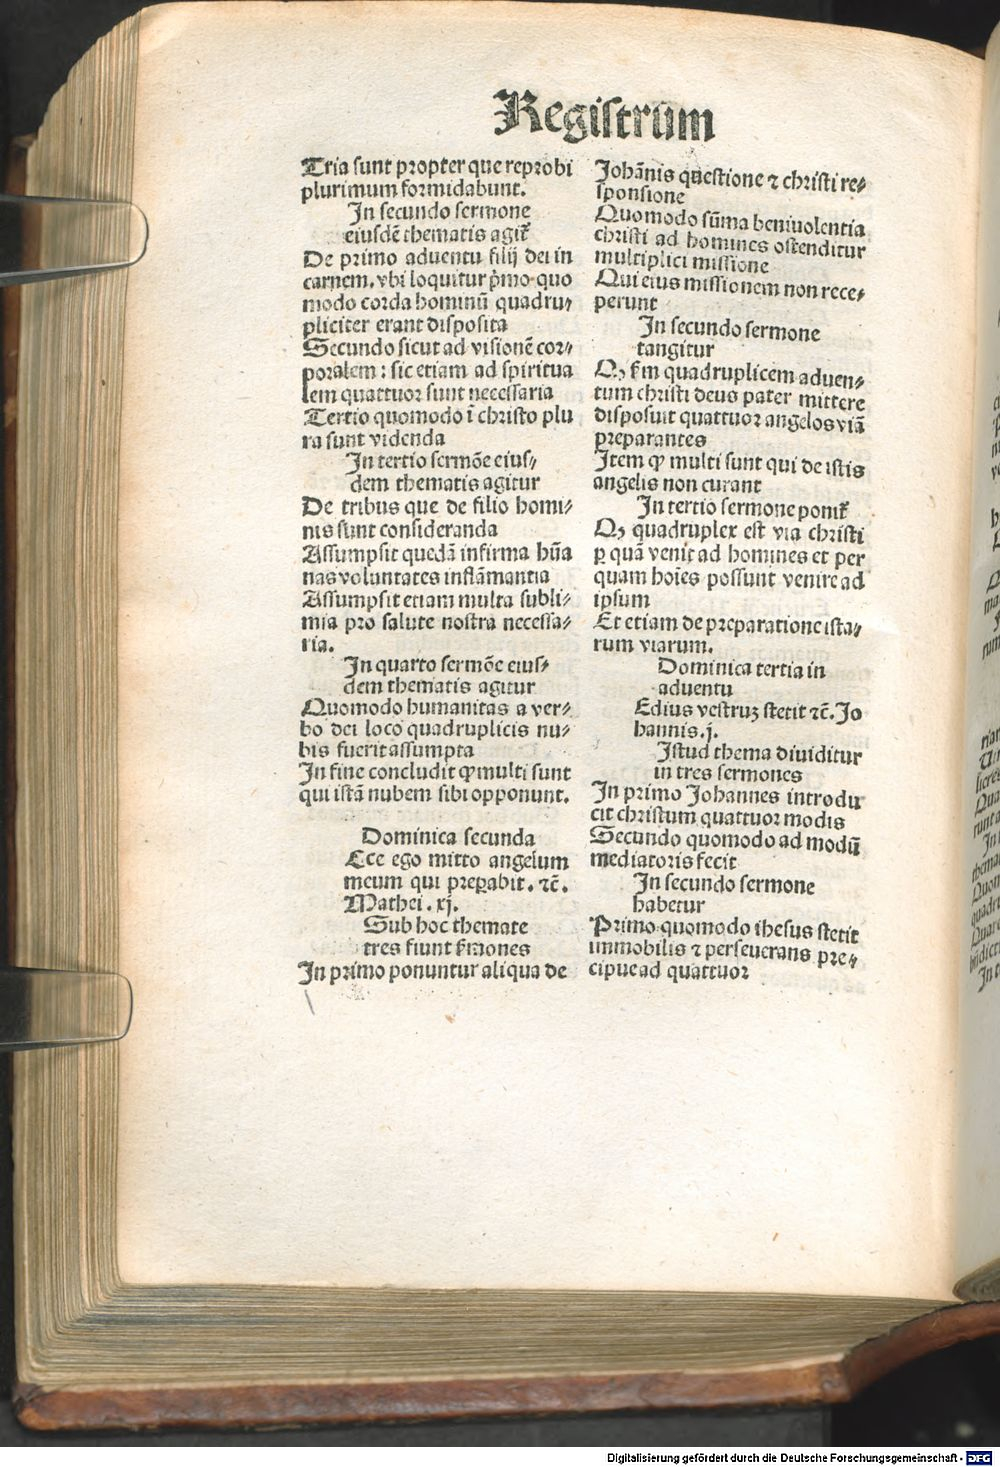 Registrum
Tria sunt propter que reprobi
plurimum formidabunt.
In secundo sermone
eiusdē thematis agit̄
De primo aduentu filij dei in
carnem. vbi loquitur p̄mo quo
modo corda hominū quadru⸗
pliciter erant disposita
Secundo sicut ad visionē cor⸗
poralem : sic etiam ad spiritua
lem quattuor sunt necessaria
Tertio quomodo ī christo plu
ra sunt videnda
In tertio sermōe eius⸗
dem thematis agitur
De tribus que de filio homi⸗
nis sunt consideranda
Assumpsit quedā infirma hūa
nas voluntates inflāmantia
Assumpsit etiam multa subli⸗
mia pro salute nostra necessa⸗
ria.
In quarto sermōe eius⸗
dem thematis agitur
Quomodo humanitas a ver⸗
bo dei loco quadruplicis nu⸗
bis fuerit assumpta
In fine concludit ꝙ multi sunt
qui istā nubem sibi opponunt.
Dominica secunda
Ecce ego mitto angelum
meum qui preꝑabit. ⁊c̄.
Mathei. xj.
Sub hoc themate
tres fiunt s̄mones
In primo ponuntur aliqua de
Johānis questione ⁊ christi re⸗
sponsione
Quomodo sūma beniuolentia
christi ad homines ostenditur
multiplici missione
Qui eius missionem non rece⸗
perunt
In secundo sermone
tangitur
Qꝫ s̄m quadruplicem aduen⸗
tum christi deus pater mittere
disposuit quattuor angelos viā
preparantes
Item ꝙ multi sunt qui de istis
angelis non curant
In tertio sermone ponit̄
Qꝫ quadruplex est via christi
ꝑ quā venit ad homines et per
quam hoīes possunt venire ad
ipsum
Et etiam de preparatione ista⸗
rum viarum.
Dominica tertia in
aduentu
Edius vestruꝫ stetit ⁊c̄. Jo
hannis. j.
Istud thema diuiditur
in tres sermones
In primo Johannes introdu
cit christum quattuor modis
Secundo quomodo ad modū
mediatoris fecit
In secundo sermone
habetur
Primo quomodo ihesus stetit
immobilis ⁊ perseuerans pre⸗
cipue ad quattuor
Digitalisierung gefördert durch die Deutsche Forschungsgemeinschaft - DFG